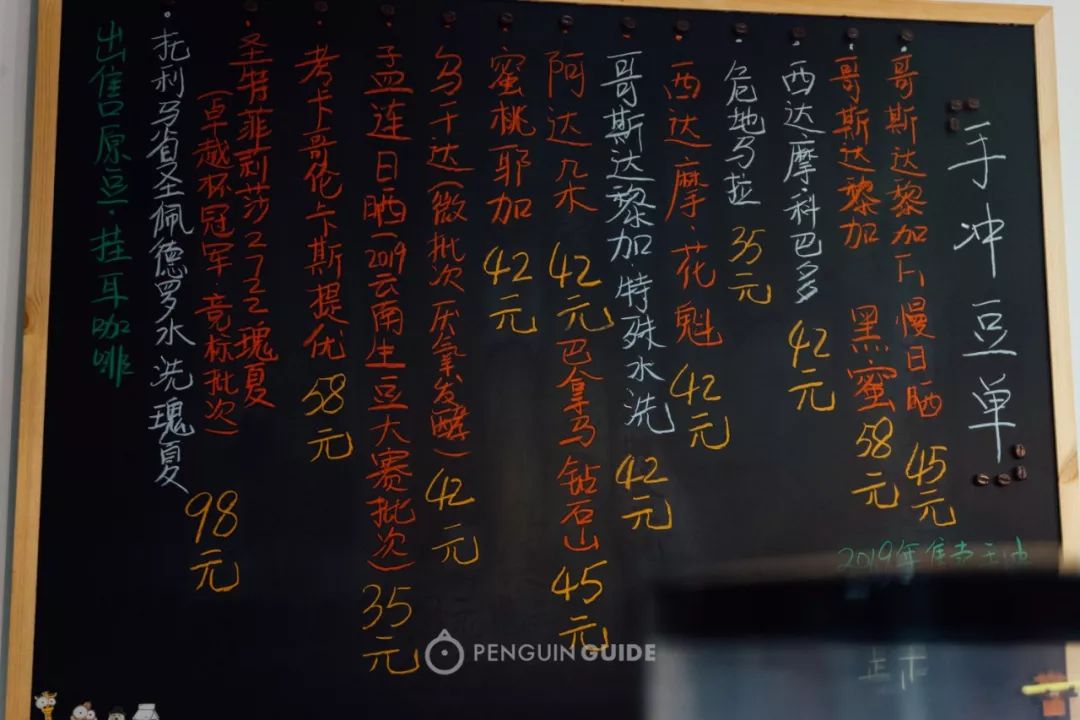 手冲豆单
2019年
哥斯达黎加F1慢日晒 45元
哥斯达黎加 黑蜜 58元
西达摩·科巴多 42元
危地马拉 35元
西达摩·花魁 42元
哥斯达黎加·特殊水洗 42元
阿达几木 42元 巴拿马钻石山 45元
蜜桃耶加 42元
乌干达(微批次厌氧发酵) 42元
孟连日晒(2019云南生豆大赛批次) 35元
考卡哥伦卡斯提优 58元
圣特菲利莎2722瑰夏
(卓越杯冠军·竞标批次) 98元
托利马省圣佩德罗水洗瑰夏
出售原豆·挂耳咖啡
PENGUIN GUIDE